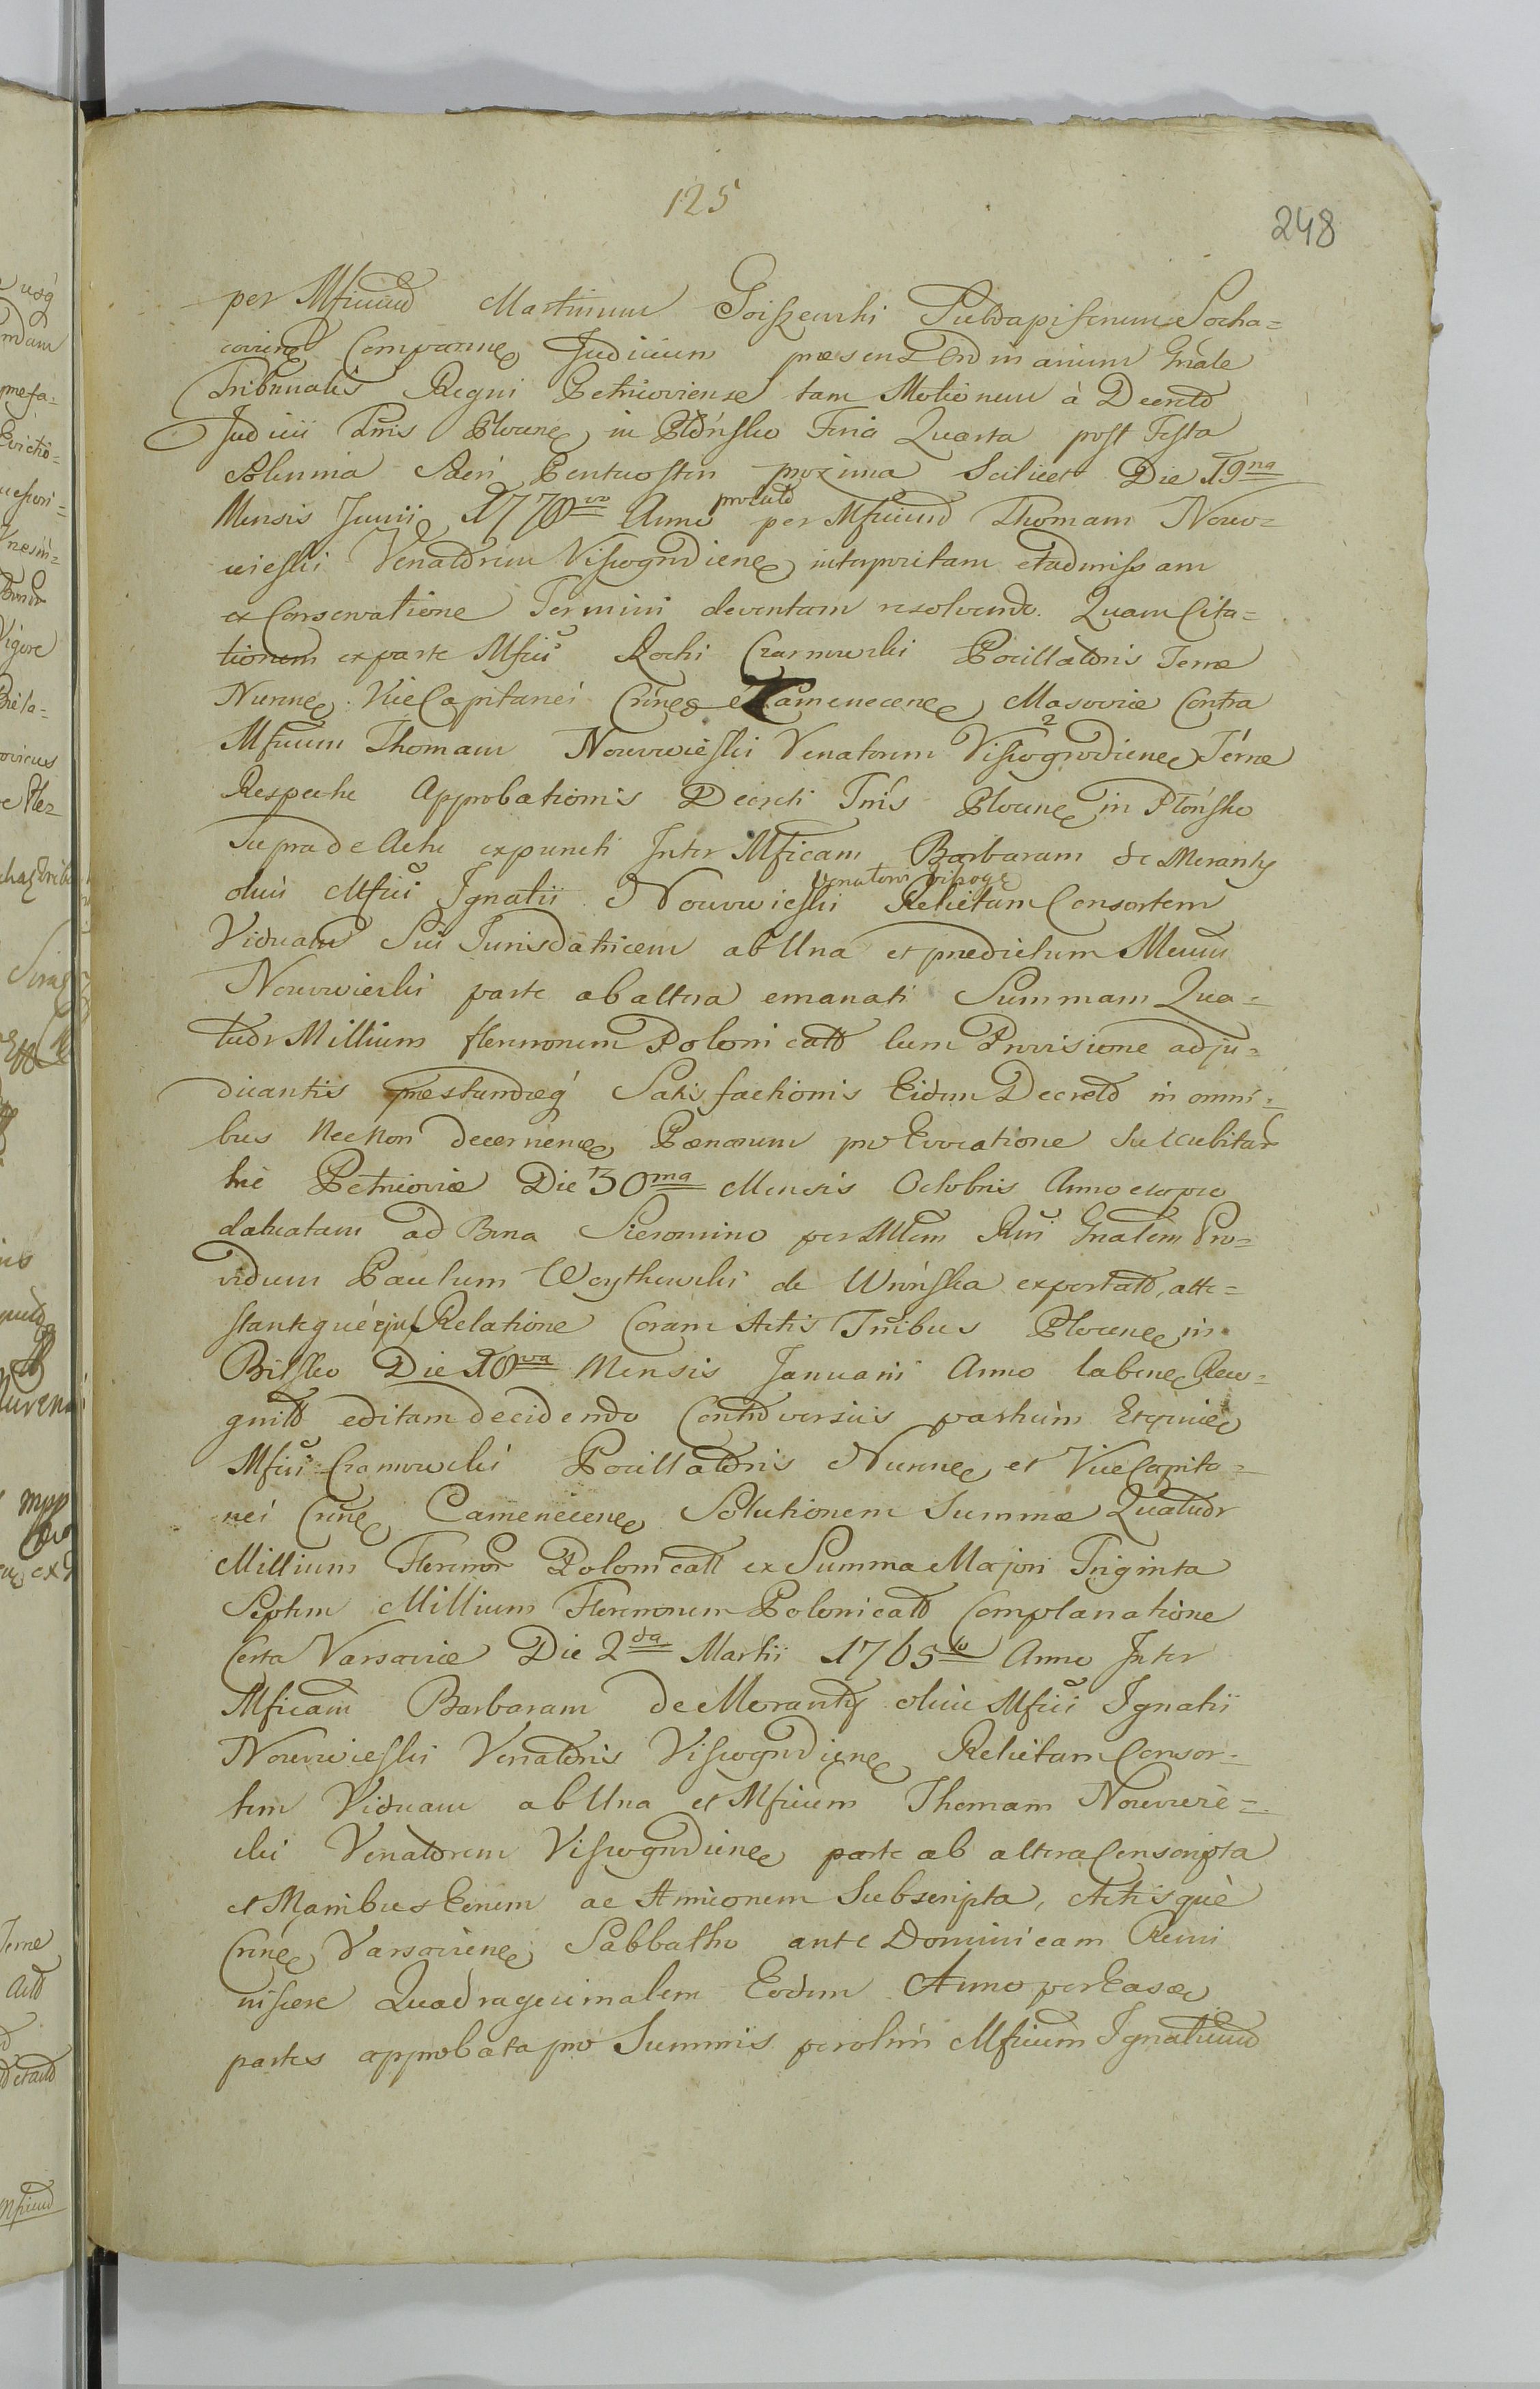 125
248
per Mficum Martinum Goiszewski Subdapiferum Socha=
coviens Comparens Judicium praesens Ordinarium Gnale
Tribunalis Regni Petricoviense tam Motionem à Decreto
Judicii Tnris Plocens in Płońsko Feria Quarta post Festa
Solennia Sacri Pentecostes proxima Scilicet Die 19na
Mensis Junii 1770mo Anno per Mficum Thomam Nowo=
wieski Venatorem Vissogrodiens interpositam et admissam
ex Conservatione Termini deventam resolvendo. Quam Cita=
tionem ex parte Mfici Rochi Czarnowski Pocillatoris Terrae
Nurens. ViceCapitanei Crnens Camenecens Masoviae Contra
Mficum Thomam Nowowieski Venatorem Vissogrodiens Terrae
Respectu Approbationis Decreti Tnris Plocens in Płońsko
Supra de Actu expuncti Inter Mficam Barbaram de Moranty
Venatoris Vissog
olim Mfici Ignatii Nowowieski Relictam Consortem
Viduam Sui Jurisdatricem ab Una et praedictum Mcum
Nowowieski parte ab altera emanati Summam Qua=
tuor Millium flenorum Polonicalm cum Provisione adju=
dicantis praestandaeq Satisfactionis Eidem Decreto in omni=
bus Necnon decernens Paenarum pro Evocatione Succubitar
hic Petricoviae Die 30ma Mensis Octobris Anno
datuatam ad Bona Sieromino per Mlem Rni Gnalem Pro=
vidum Paulum Woythowski de Wrońska exportato, atte=
stanteque ejus Relatione Coram Actis Tnibus Plocens in
Bilsko Die 10va Mensis Januarii Anno labens Reco=
gnito editam decidendo Controversiis partium
Mfici Czarnowski Pocillatoris Nurens et ViceCapita=
nei Crnens Camenecens Solutionem Summae Quatuor
Millium Florenor Polonicall ex Summa Majori Triginta
Septem Millium Florenorum Polonicalm Complanatione
Certa Varsaviae Die 2da Martii 1765to Anno Inter
Mficam Barbaram de Moranty olim Mfici Ignatii
Nowowieski Venatoris Vissogrodiens Relictam Consor=
tem Viduam ab Una et Mficum Thomam Nowowie=
ski Venatorem Vissogrodiens parte ab altera Conscripta
et Manibus Eorum ac Amicorum Subscripta, Actisque
Crnens Varsaviens Sabbatho ante Dominicam Remi
niscere Quadragesimalem Eodem Anno per Easd
partes approbata pro Summis per olim Mficum Ignatium